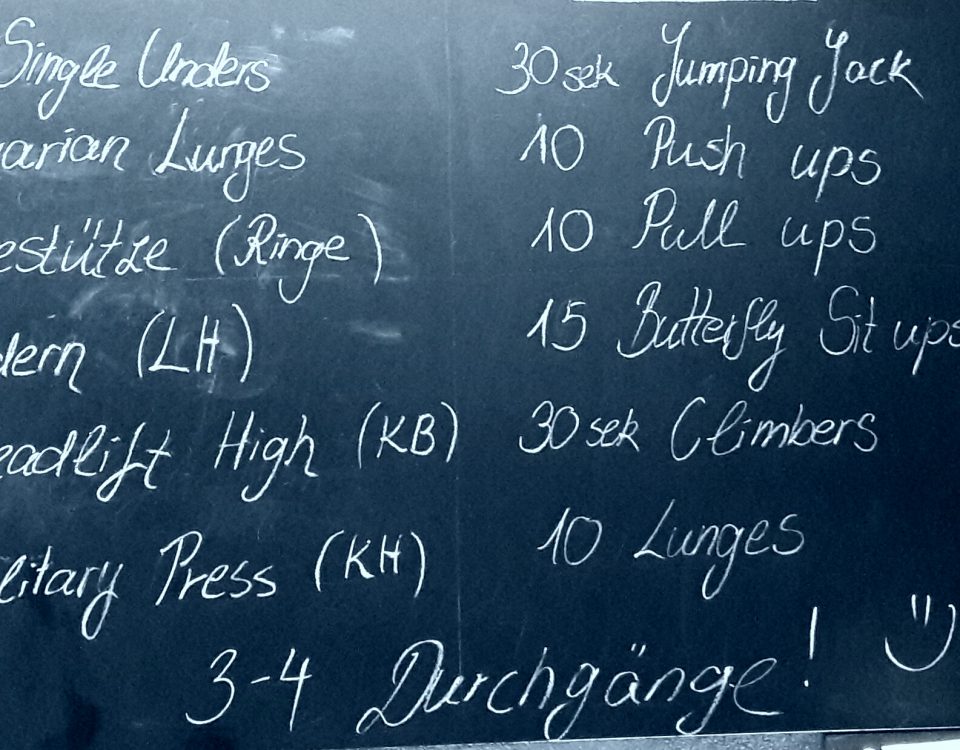 Single Unders
arian Lunges
estütze (Ringe)
dern (LH)
eadlift High (KB)
litary Press (KH)
30 sek Jumping Jack
10 Push ups
10 Pull ups
15 Butterfly Sit ups
30 sek Climbers
10 Lunges
3-4 Durchgänge!